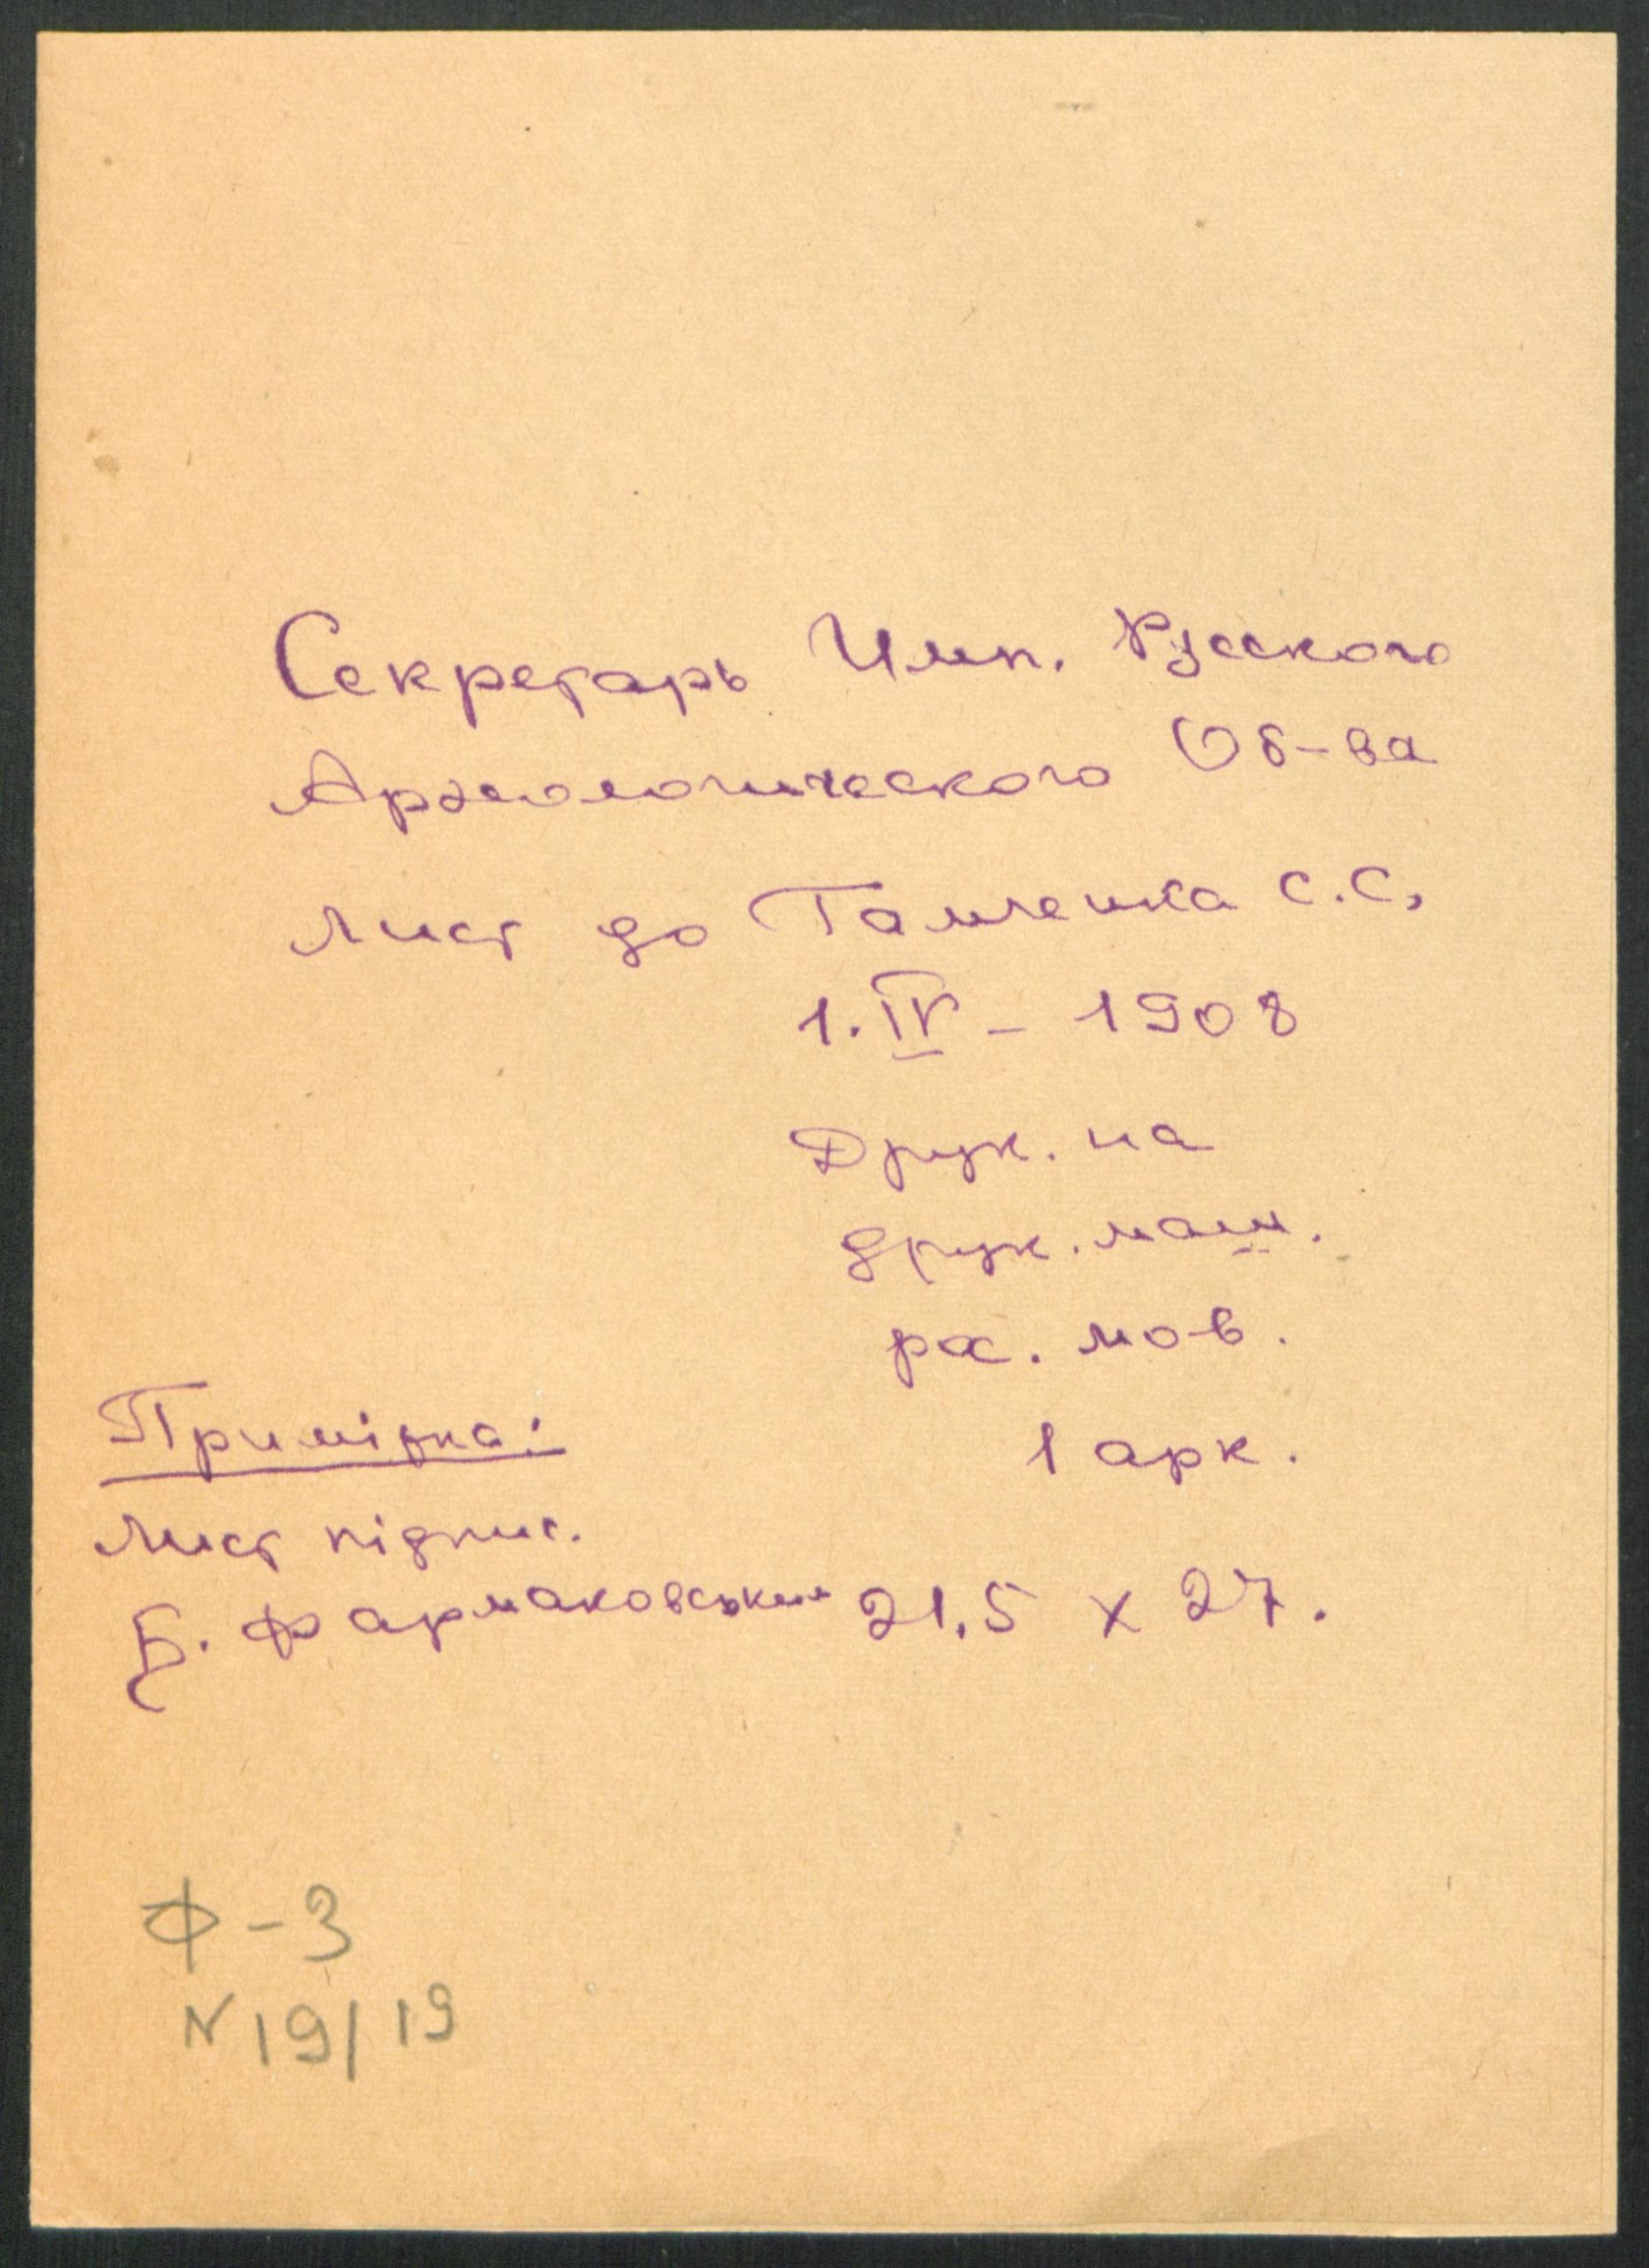 Секретарь Имп. Русского
Археологического Об-ва
Лист до Гамченка С.С.
1.IV - 1908
Друк. на
друк. маш.
рос. мов.
1 арк.
Примітка:
Лист підпис.
Б. Фармаковським 21,5 х 27.
Ф-3
N 19/19